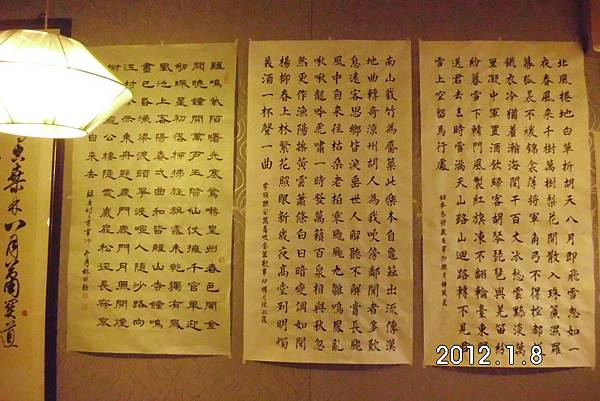 北風捲地白草折胡天八月即飛雪忽如一
夜春風來千樹萬樹梨花開散入珠簾濕羅
幕狐裘不煖錦衾薄將軍角弓不得控都護
鐵衣冷猶著瀚海闌干百丈冰愁雲黲淡萬
里凝中軍置酒飲歸客胡琴琵琶與羌笛紛
紛暮雪下轅門風掣紅旗凍不翻輪臺東門
送君去去時雪滿天山路山迴路轉不見君
雪上空留馬行處
南山截竹為觱篥此樂本自龜茲出流傳漢
地曲轉奇涼州胡人為我吹傍鄰聞者多歎
息遠客思鄉皆淚垂世人解聽不解賞長飆
風中自來往枯桑老柏寒颼飀九雛鳴鳳亂
啾啾龍吟虎嘯一時發萬籟百泉相與秋忽
然更作漁陽摻黃雲蕭條白日暗變調如聞
楊柳春上林繁花照眼新歲夜高堂列明燭
美酒一杯聲一曲
雞鳴紫陌曙光寒鶯囀皇州春色闌金
闕曉鐘開萬戶玉階仙仗擁千官花迎
劍珮星初落柳拂旌旗露未乾獨有鳳
凰池上客陽春一曲和皆難山寺鐘鳴
晝已昏漁梁渡頭爭渡喧人隨沙路向
江村余亦乘舟歸鹿門鹿門月照開煙
樹忽到龐公棲隱處巖扉松徑長寂寥
自來去
桑林八月蕭關道
2012.1.8